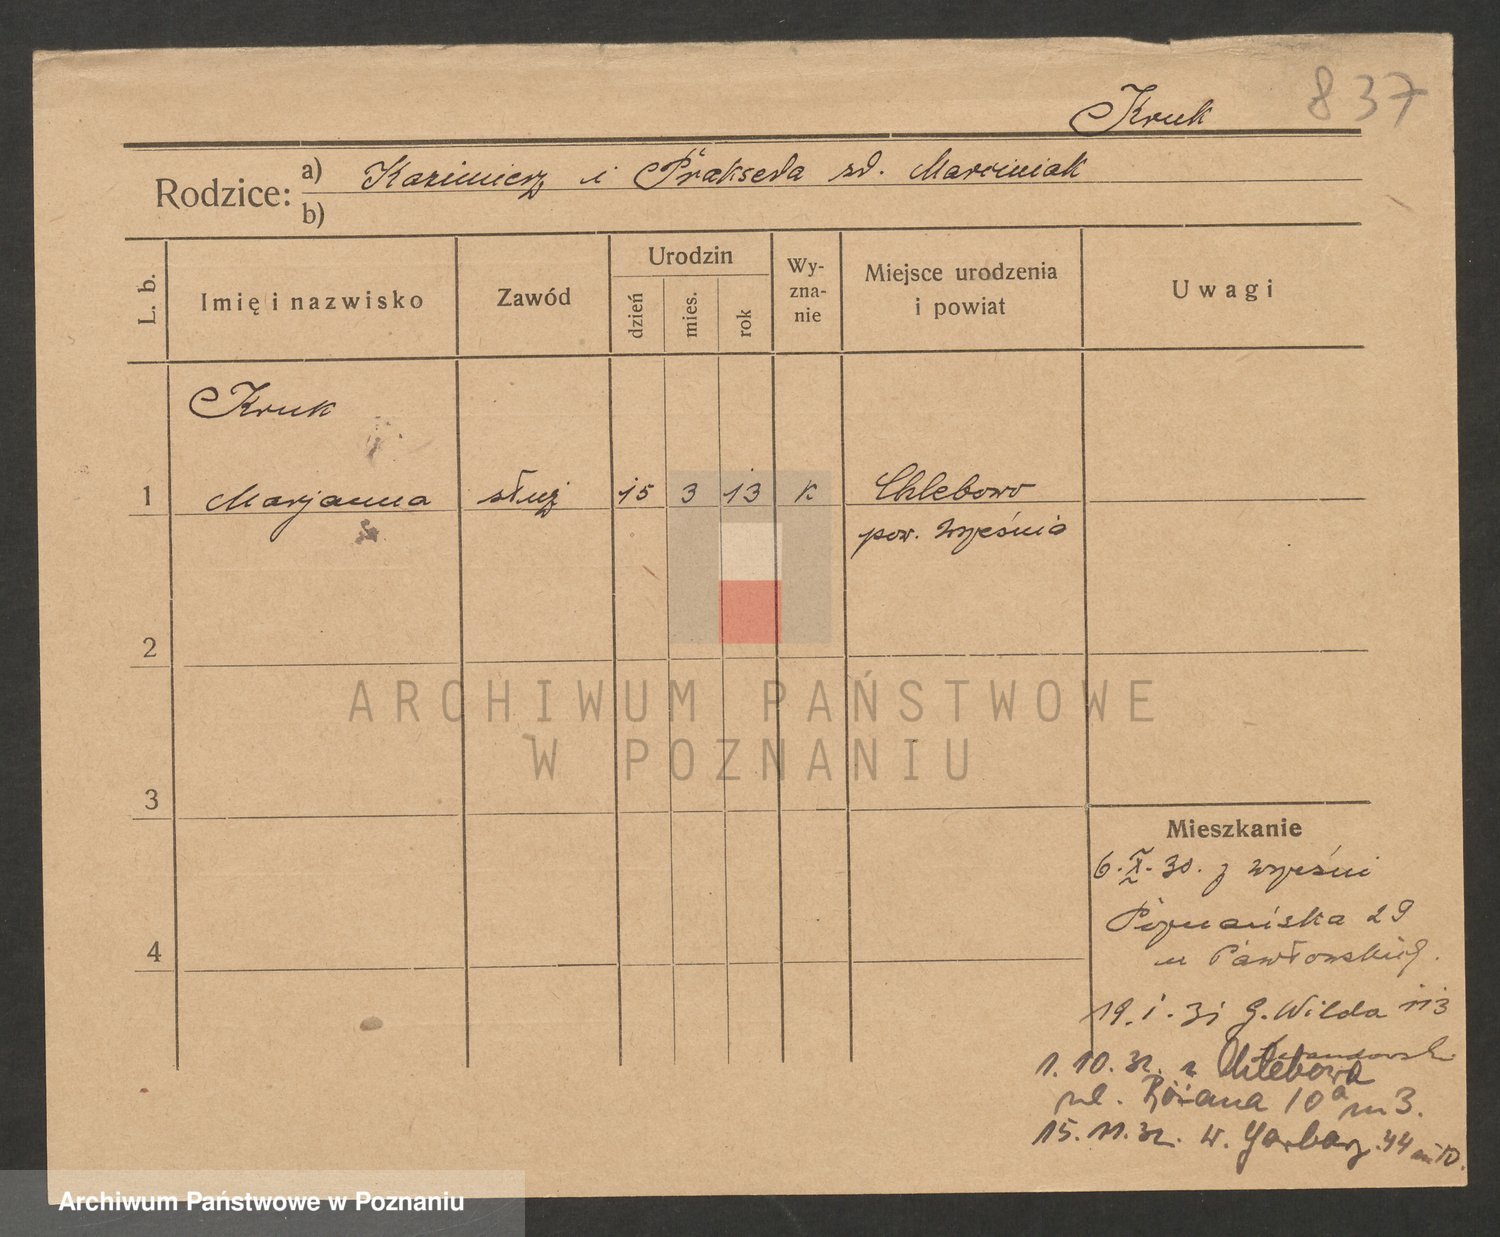 837
Kruk
Rodzice: a) Kazimierz i Prakseda zd. Marciniak
b)
L. b.
Imię i nazwisko
Zawód
Urodzin
dzień
mies.
rok
Wy-
zna-
nie
Miejsce urodzenia
i powiat
Uwagi
Kruk
1 Marjanna służ 15 3 13 k Chlebowo
pow. Września
2
3
4
Mieszkanie
6.X.30. z Wrześni
Poznańska 29
u Pawłowskieg.
19.1.31 G. Wilda 113
Lewandowsk
1.10.32. z Chlebowa
ul. Różana 10a m 3.
15.11.32. W. Garbary 44 m 10.
ARCHIWUM PAŃSTWOWE
W POZNANIU
Archiwum Państwowe w Poznaniu